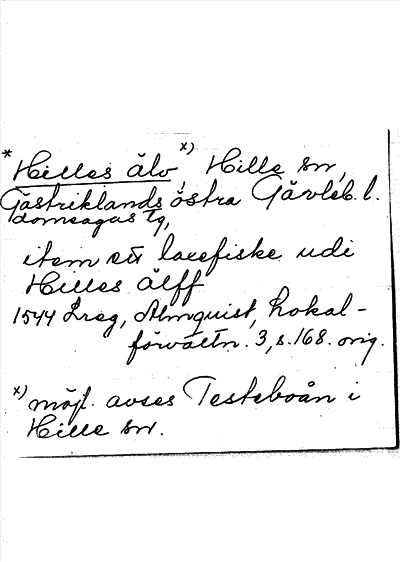 * Hilles älv, x) Hille sn,
Gästriklands östra Gävleb. l.
domsagas tg,
item ett laxefiske udi
Hilles älff
1544 Lreg, Almquist, Lokal-
förvaltn. 3, s. 168. orig.
x) möjl. avses Testeboån i
Hille sn.